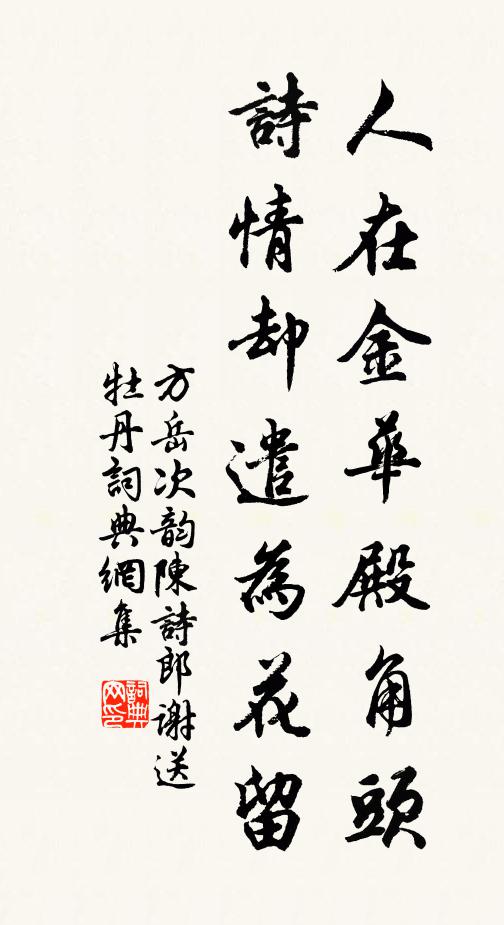 人在金華殿角頭
詩情却遣為花留
方岳次韵陳詩郎謝送
牡丹詞典網集
詞典
网印